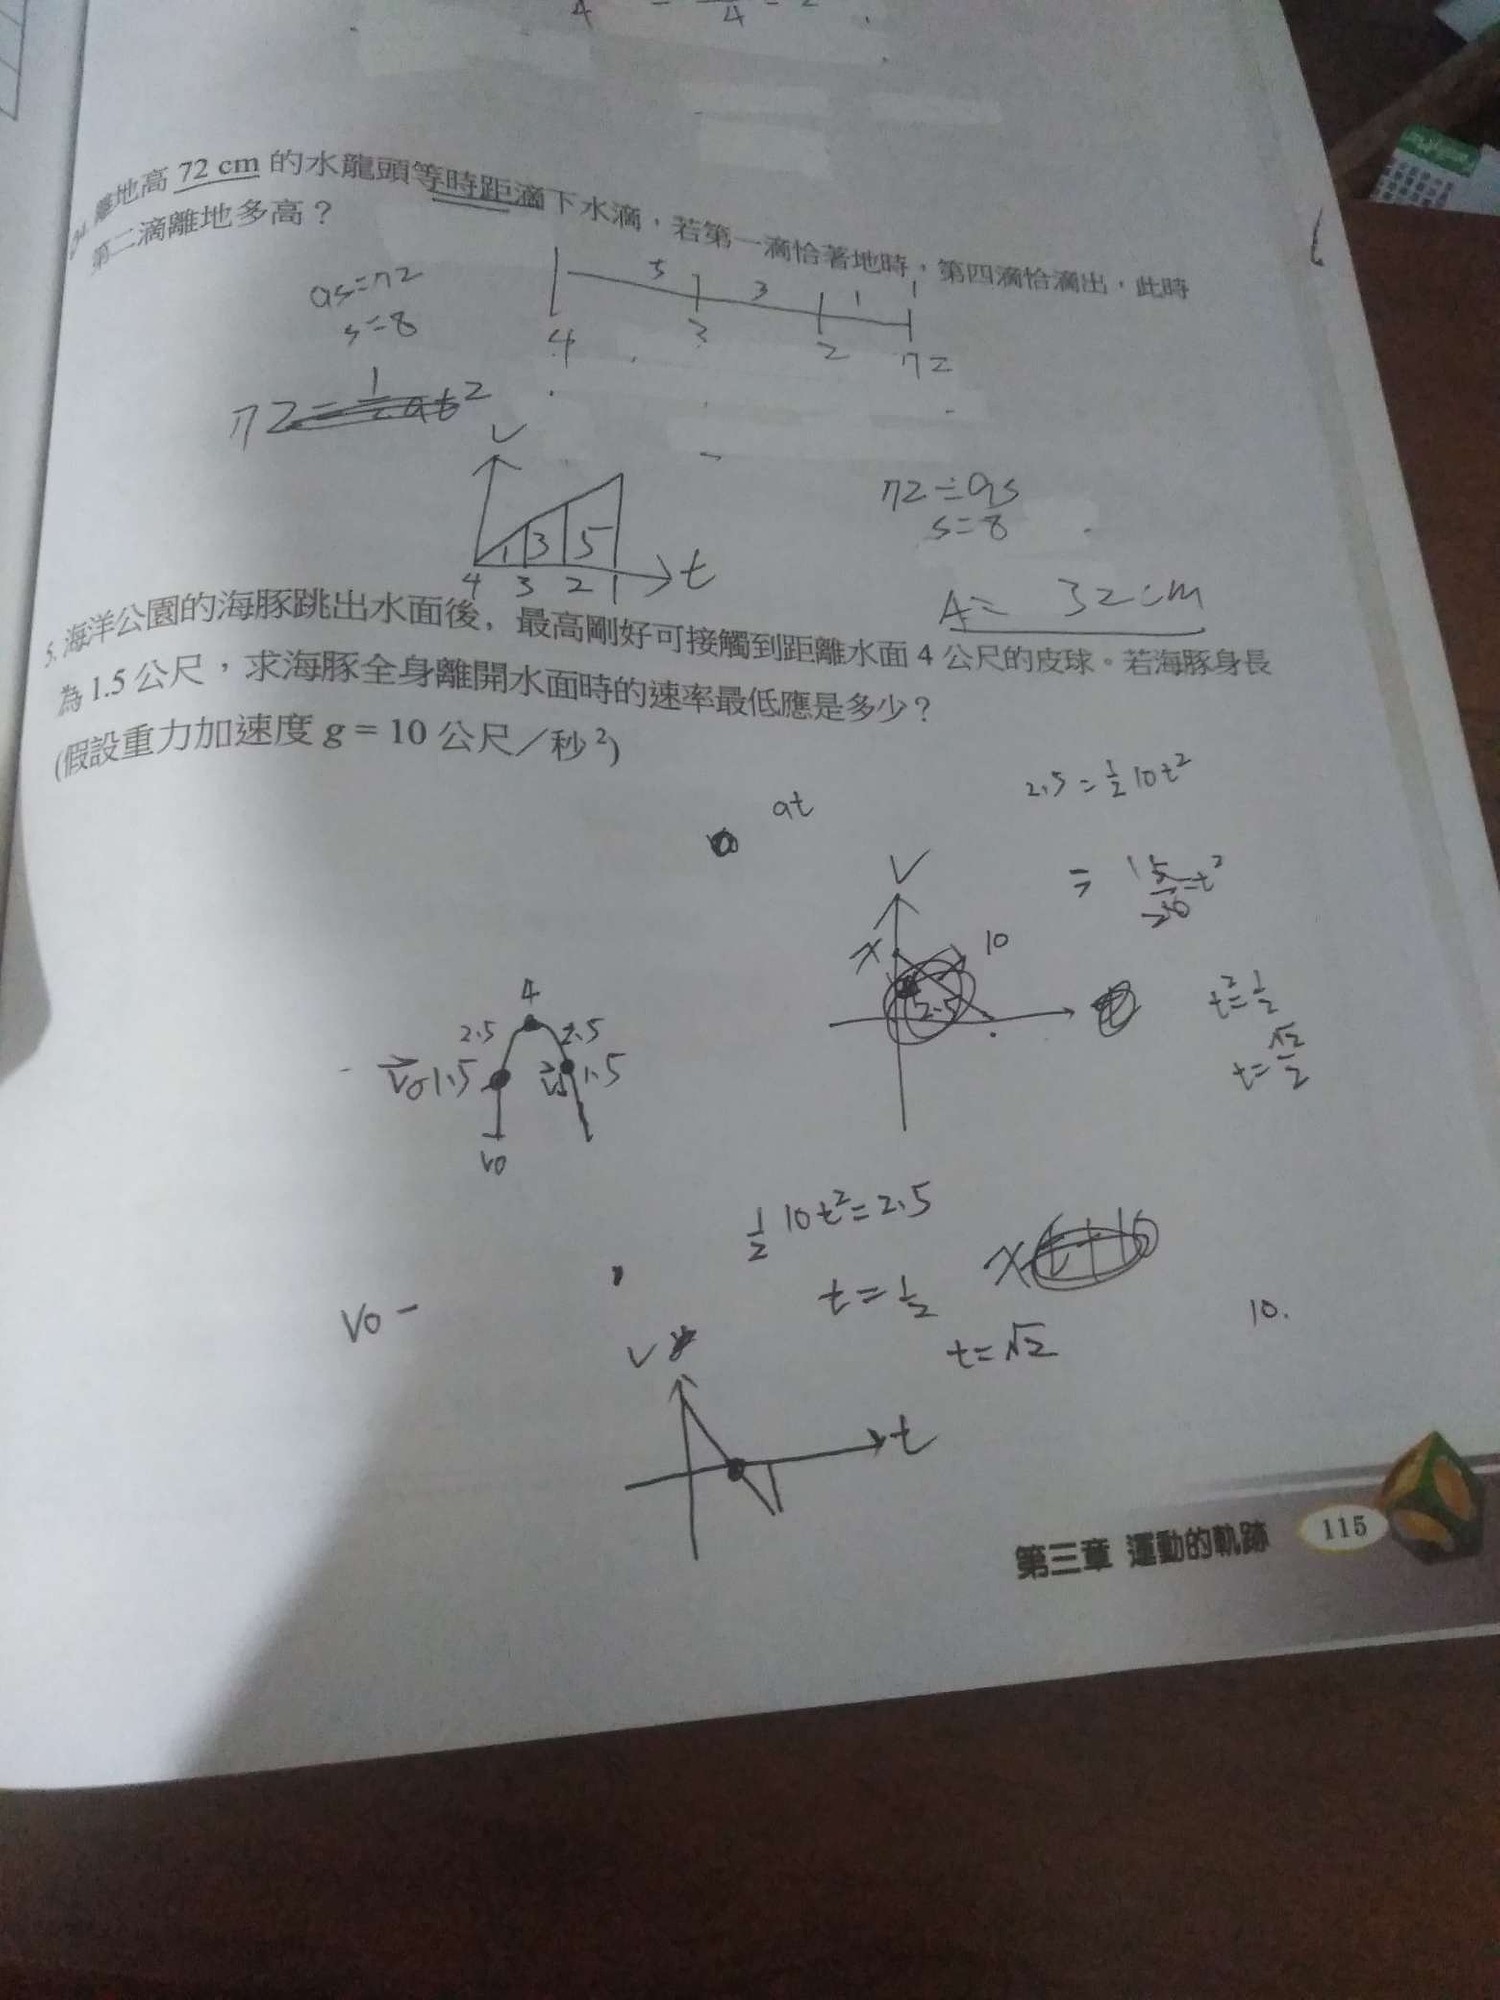 離地高 72 cm 的水龍頭等時距滴下水滴，若第一滴恰著地時，第四滴恰滴出，此時
第二滴離地多高？
9s=72
s=8
5 3 1
4 3 2 72
72=½at²
V
72÷9s
s=8
1 3 5
4 3 2 1 t
A= 32cm
5. 海洋公園的海豚跳出水面後，最高剛好可接觸到距離水面 4 公尺的皮球。若海豚身長
為 1.5 公尺，求海豚全身離開水面時的速率最低應是多少？
(假設重力加速度 g = 10 公尺／秒²)
at
2.5=½10t²
V
x
10
2.5
t²=½
t=√2/2
4
2.5 2.5
V0 1.5 1.5
V0
½10t²=2.5
t=½
t=√2
10.
V0 -
V
t
第三章 運動的軌跡 115